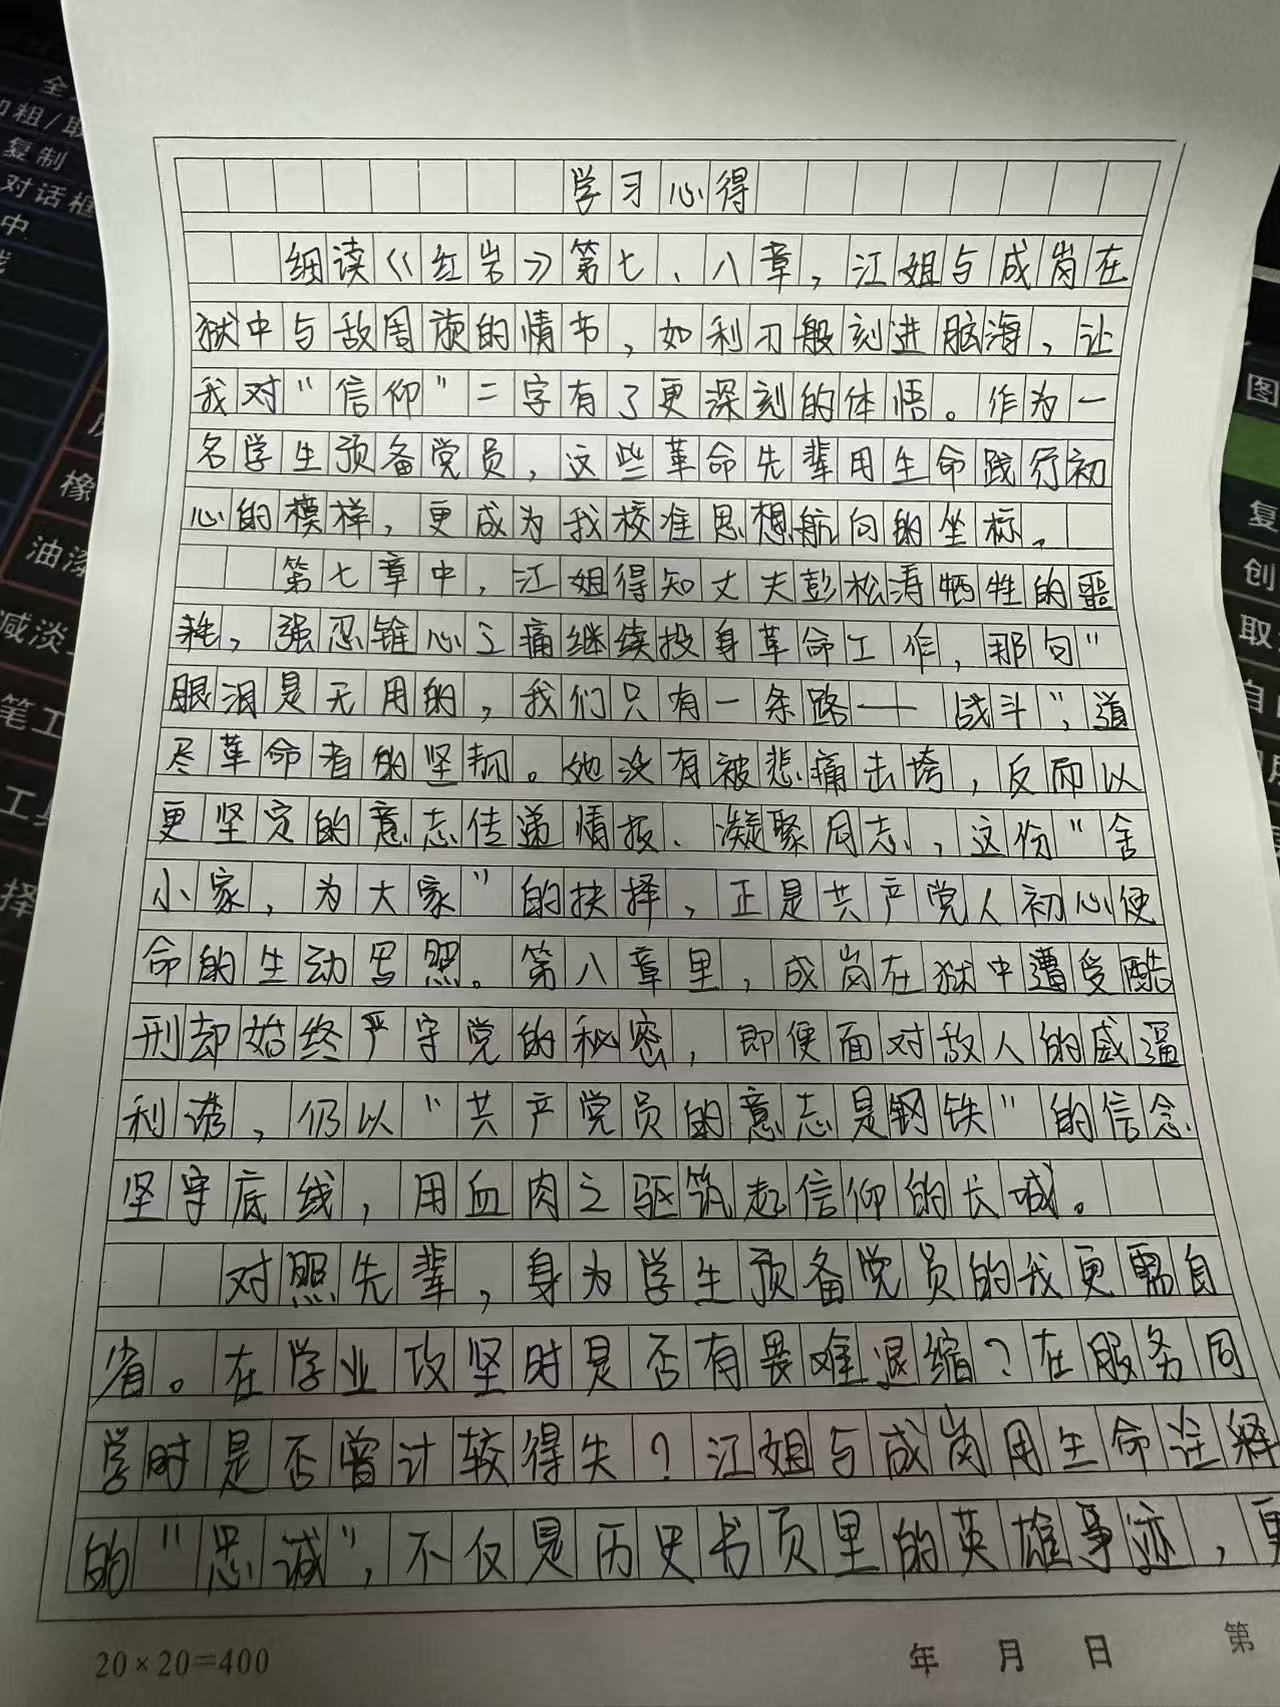 学习心得
细读《红岩》第七、八章，江姐与成岗在
狱中与敌周旋的情节，如利刃般刻进脑海，让
我对“信仰”二字有了更深刻的体悟。作为一
名学生预备党员，这些革命先辈用生命践行初
心的模样，更成为我校准思想航向的坐标。
第七章中，江姐得知丈夫彭松涛牺牲的噩
耗，强忍锥心之痛继续投身革命工作，那句“
眼泪是无用的，我们只有一条路——战斗”，道
尽革命者的坚韧。她没有被悲痛击垮，反而以
更坚定的意志传递情报、凝聚同志，这份“舍
小家，为大家”的抉择，正是共产党人初心使
命的生动写照。第八章里，成岗在狱中遭受酷
刑却始终严守党的秘密，即便面对敌人的威逼
利诱，仍以“共产党员的意志是钢铁”的信念
坚守底线，用血肉之躯筑起信仰的长城。
对照先辈，身为学生预备党员的我更需自
省。在学业攻坚时是否有畏难退缩？在服务同
学时是否曾计较得失？江姐与成岗用生命诠释
的“忠诚”，不仅是历史书页里的英雄事迹，更
20×20=400
年 月 日
第
全
加粗/取
复制
对话框
中
橡
油漆
减淡工
笔工
工具
择
图
复
创
取
自